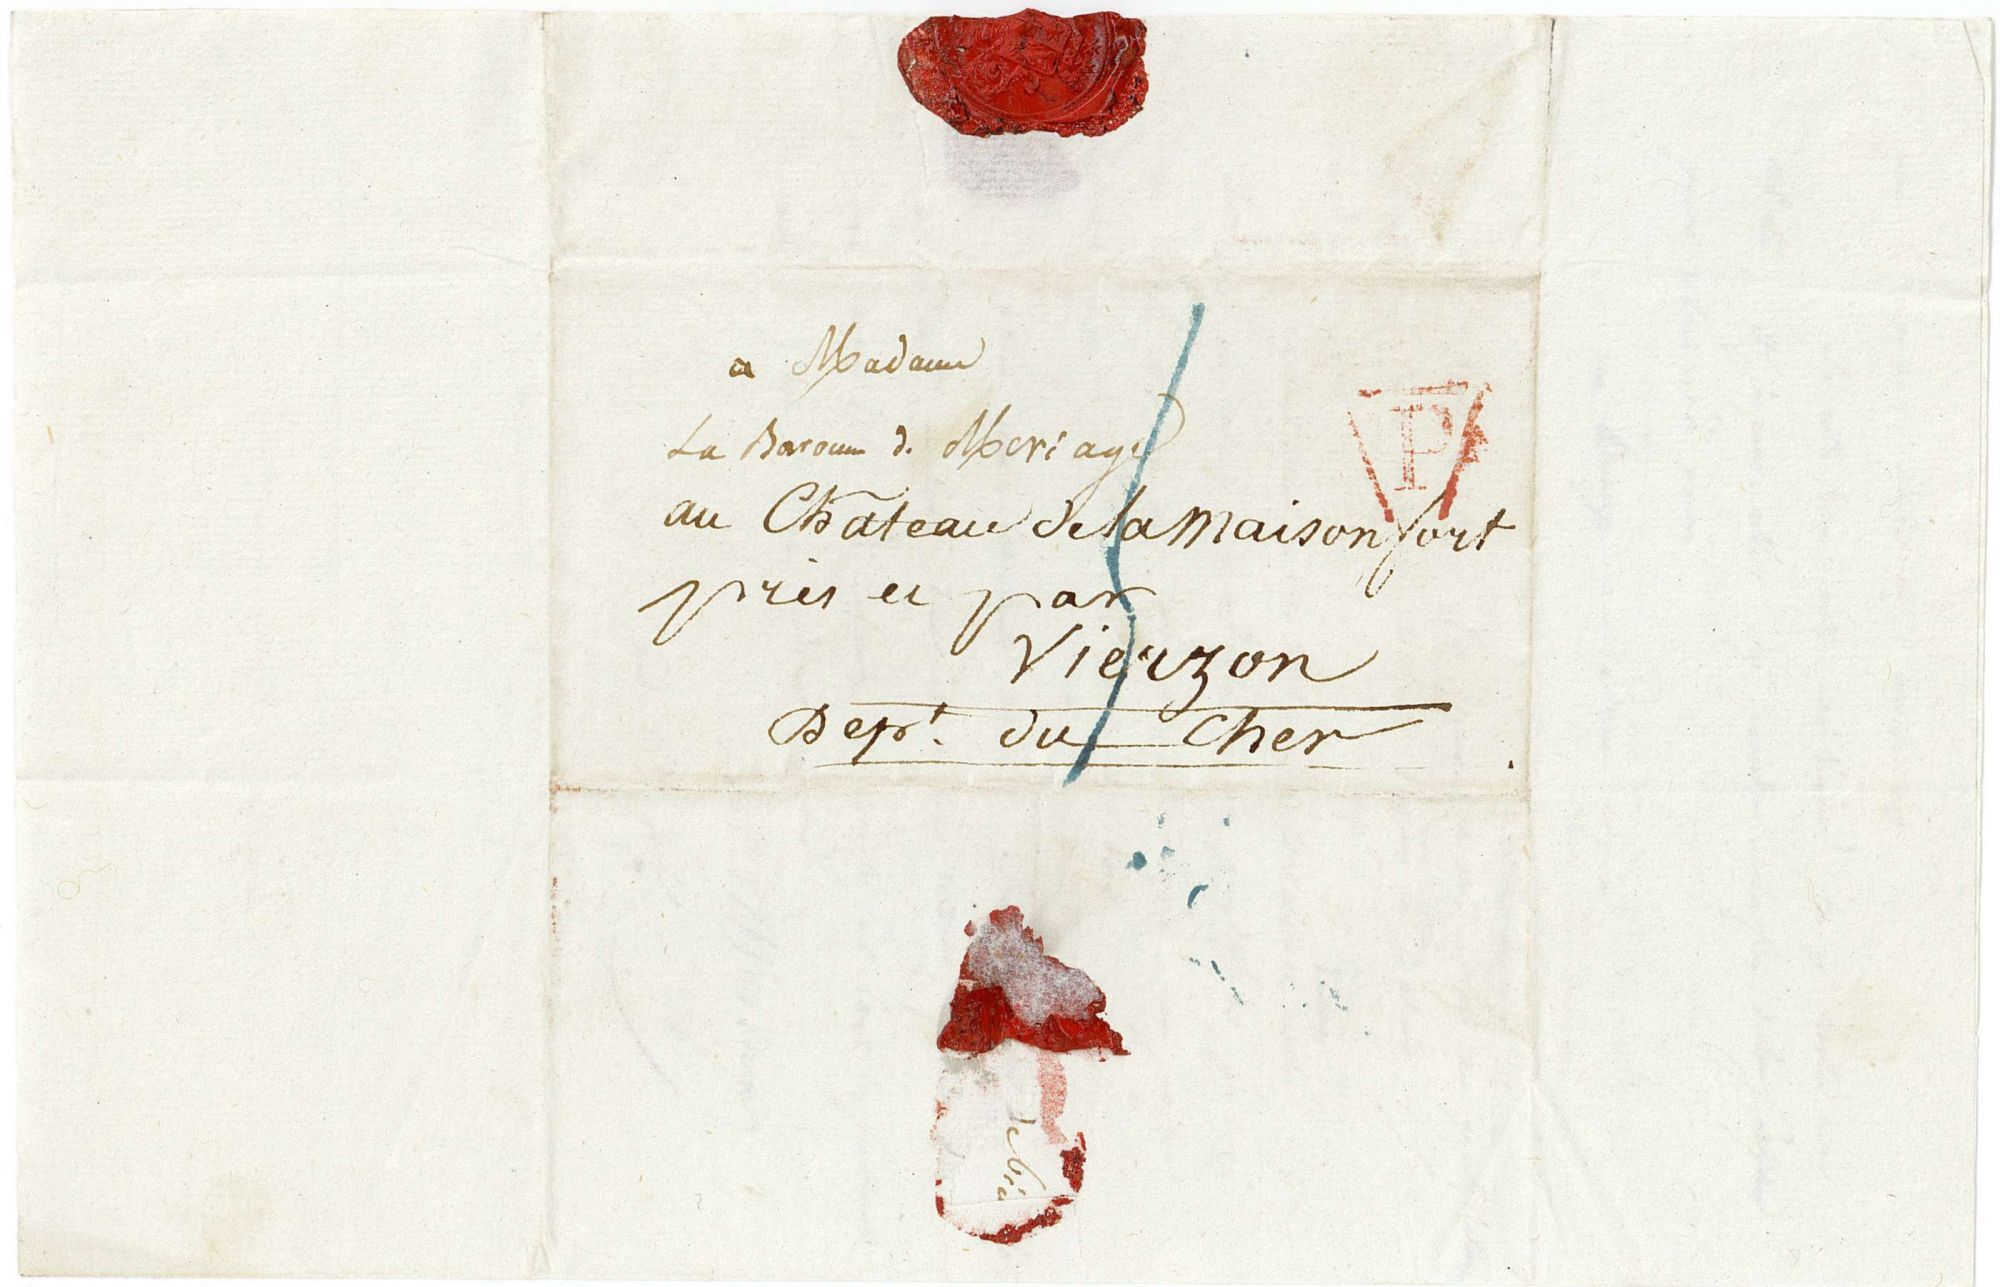 a Madame
La Baronne de Meriage
au Château de la Maisonfort
près et par
Vierzon
Dept. du Cher
P